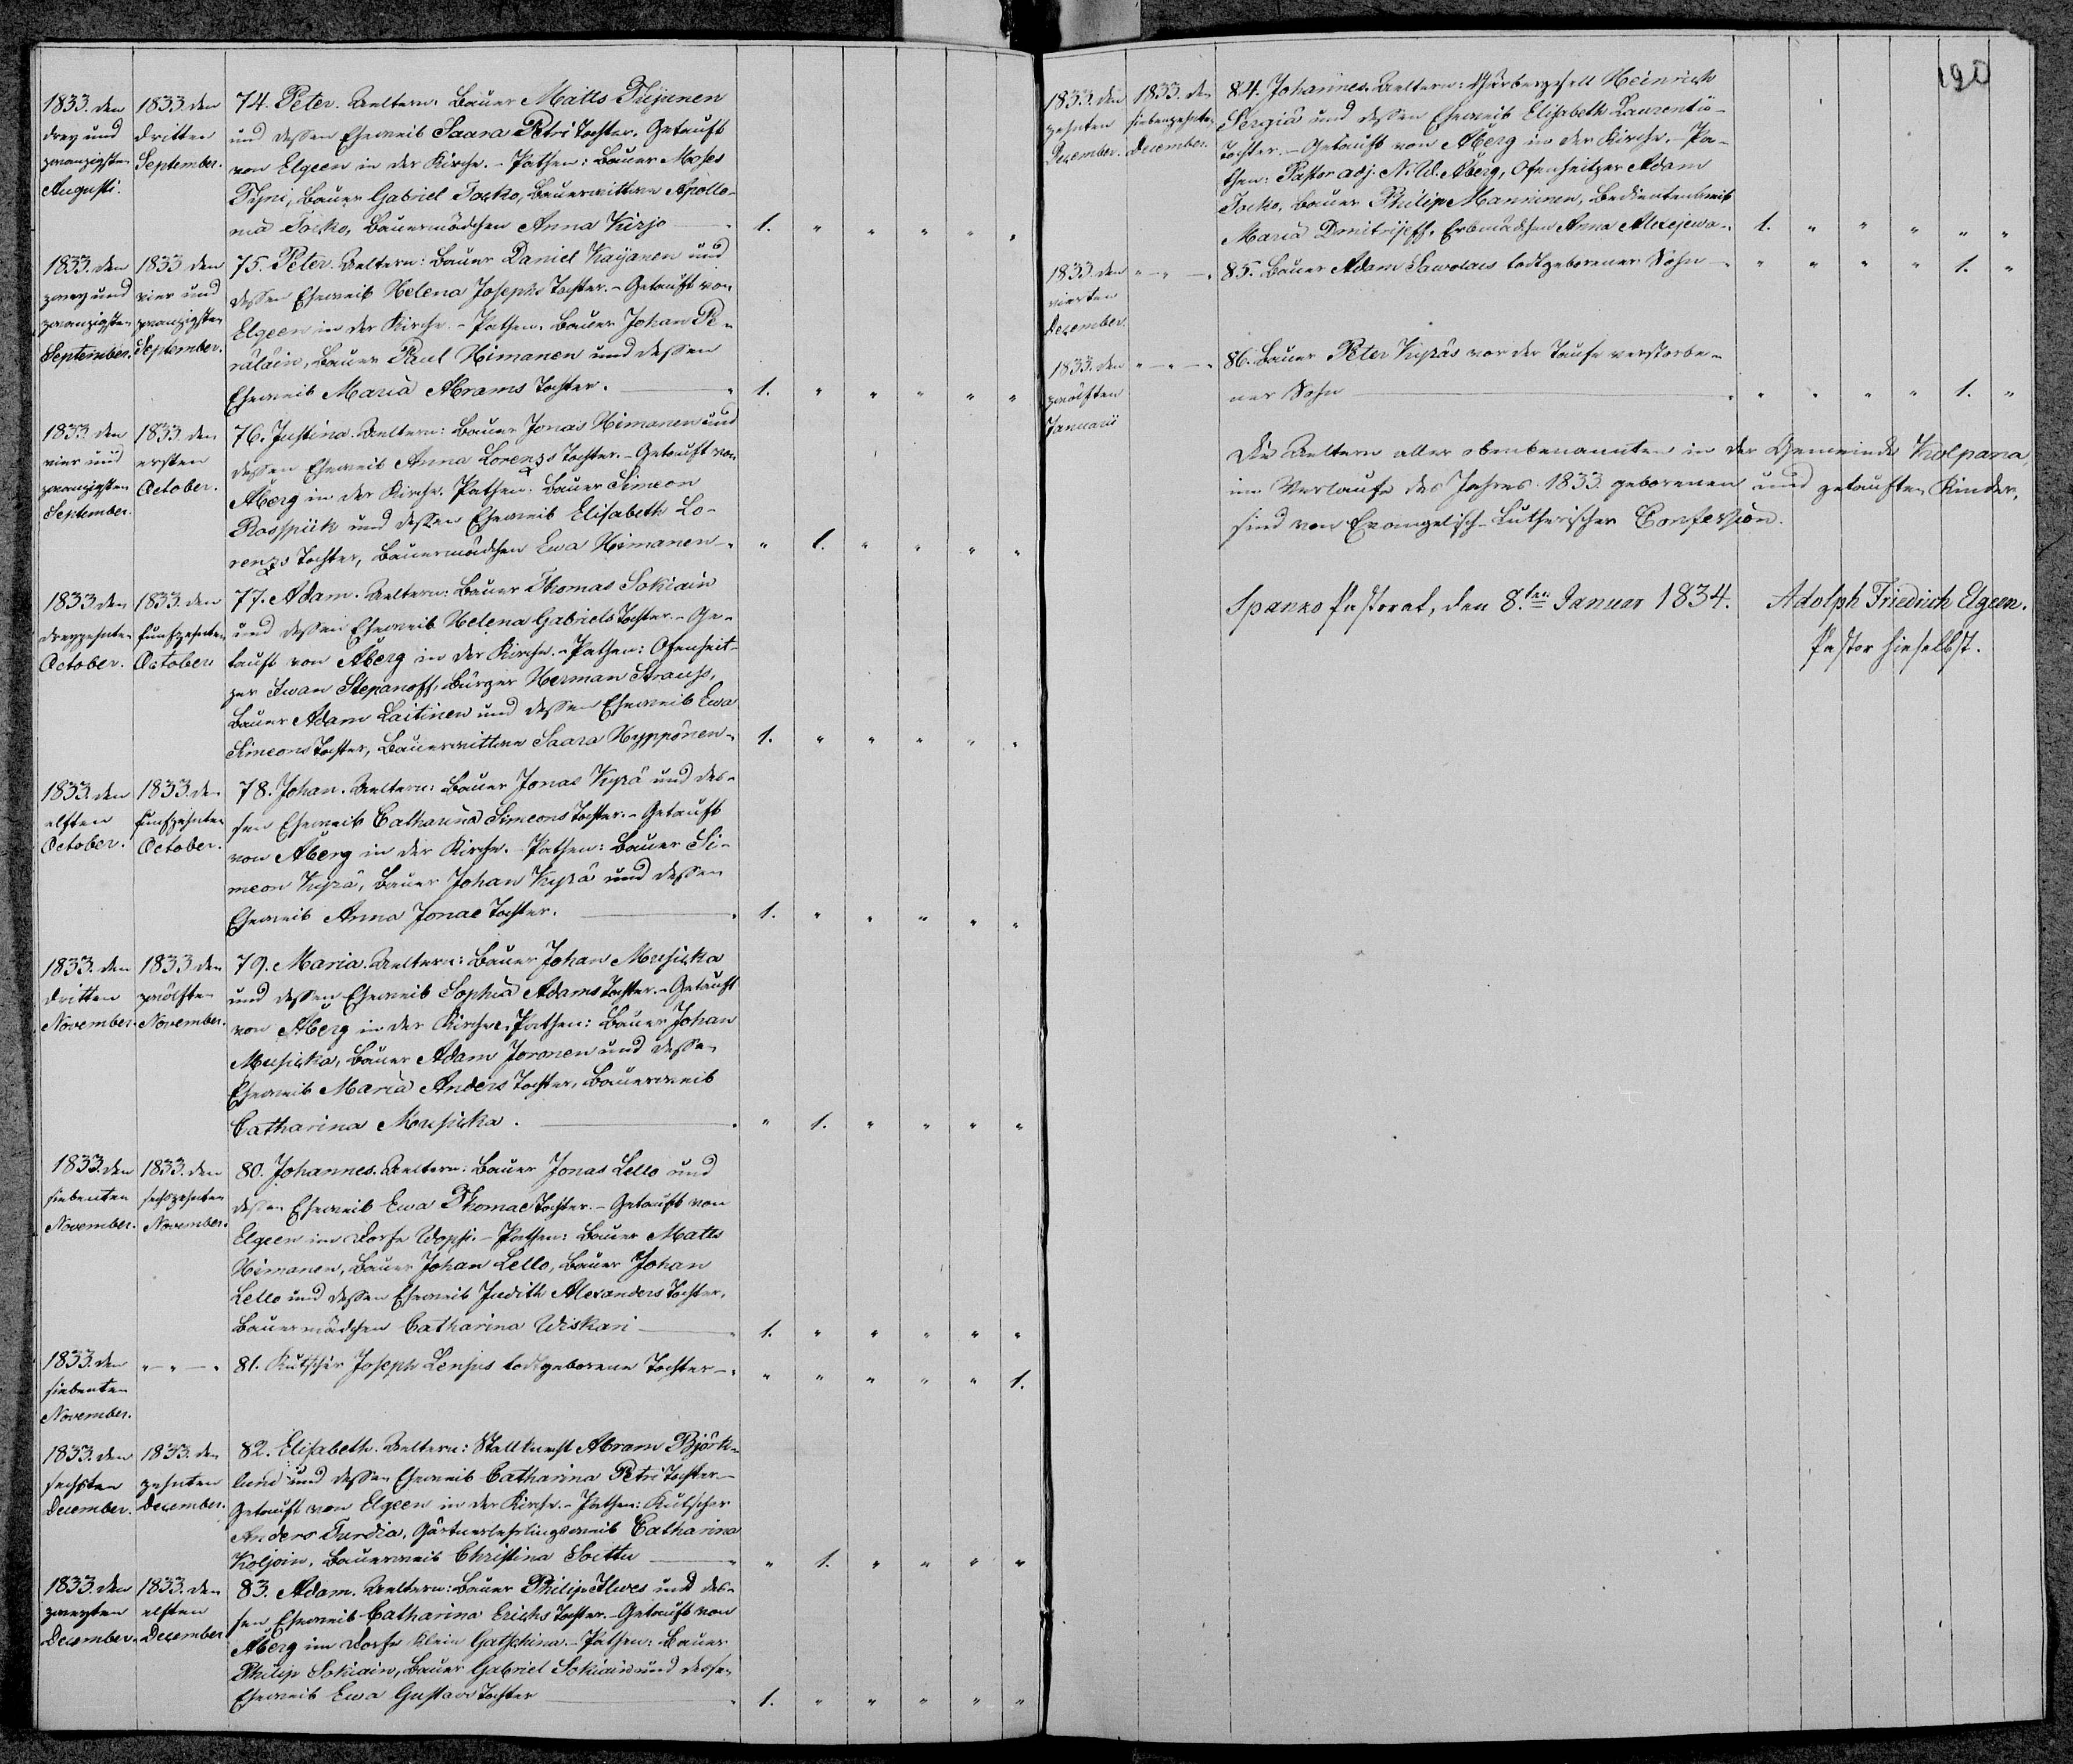 1833. den drey und zwanzigsten Augusti.
1833. den dritten September.
74. Peter. Aeltern: Bauer Matts Thijnen
und dessen Eheweib Saara Petri Tochter. Getauft
von Elgeen in der Kirche. - Pathen: Bauer Moses
Bauer Gabriel Bauerwittwe Apollo-
nia Bauermädchen Anna Kirjo 1. " " " " "
1833. den zwey und zwanzigsten September.
1833 den vier und zwanzigsten September.
75. Peter. Aeltern: Bauer Daniel Kaijanen und
dessen Eheweib Helena Josephs Tochter. - Getauft von
Elgeen in der Kirche. - Pathen: Bauer Johan Pe-
räläin, Bauer Paul Himanen und dessen
Eheweib Maria Abrams Tochter. 1. " " " " "
1833. den vier und zwanzigsten September.
1833. den ersten October.
76. Justina. Aeltern: Bauer Jonas Himanen und
dessen Eheweib Anna Lorenzs Tochter. - Getauft von
Åberg in der Kirche. Pathen: Bauer Simeon
und dessen Eheweib Elisabeth Lo-
renzs Tochter, Bauermädchen Ewa Himanen - " 1. " " " "
1833 den dreyzehnten October.
1833. den funfzehnten October.
77. Adam. Aeltern: Bauer Thomas Sokiain
und dessen Eheweib Helena Gabriels Tochter. - Ge-
tauft von Åberg in der Kirche. - Pathen: Ofenheit-
zer Iwan Stepanoff, Bürger Herman Strauss,
Bauer Adam Laitinen und dessen Eheweib Ewa
Simeons Tochter, Bauerwittwe Saara Hyppönen - 1. " " " " "
1833. den elften October.
1833. den funfzehnten October.
78. Johan. Aeltern: Bauer Jonas Kyrä und des-
sen Eheweib Catharina Simeons Tochter. - Getauft
von Åberg in der Kirche. - Pathen: Bauer Si-
meon Kyrä, Bauer Johan Kyrä und dessen
Eheweib Anna Jonae Tochter. 1. " " " " "
1833. den dritten November.
1833 den zwölften November.
79. Maria. Aeltern: Bauer Johan Musikka
und dessen Eheweib Sophia Adams Tochter. - Getauft
von Åberg in der Kirche. Pathen: Bauer Johan
Musikka, Bauer Adam Joronen und dessen
Eheweib Maria Anders Tochter, Bauerweib
Catharina Musikka. " 1. " " " "
1833. den siebenten November.
1833. den sechszehnten November.
80. Johannes. Aeltern: Bauer Jonas Lello und
dessen Eheweib Ewa Thomae Tochter. - Getauft von
Elgeen im Dorfe Wopsi. - Pathen: Bauer Matts
Himanen, Bauer Johan Lello, Bauer Johan
Lello und dessen Eheweib Judith Alexanders Tochter,
Bauermädchen Catharina Wiskari 1. " " " " "
1833. den siebenten November.
" - " - "
81. Kutscher Joseph Lensus todtgeborene Tochter - " " " " " 1.
1833. den sechsten December.
1833. den zehnten December.
82. Elisabeth. Aeltern: Stallknecht Abram Björk-
lund und dessen Eheweib Catharina Petri Tochter. -
Getauft von Elgeen in der Kirche. - Pathen: Kutscher
Anders Turdia, Gärtnerlehrlingsweib Catharina
Koljoin, Bauerweib Christina Soittu " 1. " " " "
1833. den zweyten December.
1833. den elften December
83. Adam. Aeltern: Bauer Philip Ilwes und des-
sen Eheweib Catharina Erichs Tochter. - Getauft von
Åberg im Dorfe Klein Gatschina. - Pathen: Bauer
Philip Sokiain, Bauer Gabriel Sokiain und dessen
Eheweib Ewa Gustavs Tochter 1. " " " " "
190
1833. den zehnten December.
1833. den siebenzehnten December.
84. Johannes. Aeltern: Heinrich
Sergiä und dessen Eheweib Elisabeth Laurentii-
Tochter. - Getauft von Åberg in der Kirche. - Pa-
then: Pastor adj. Åberg, Ofenheitzer Adam
Bauer Philip Manninen, Bedientenweib
Maria Dmitrijeff, Erbmädchen Anna Alexejewa - 1. " " " " "
1833. den vierten December.
" - " - "
85. Bauer Adam Sawolais todtgeborener Sohn - " " " " 1. "
1833. den zwölften Januarii
" - " - "
86. Bauer Peter Kyräs vor der Taufe verstorbe-
ner Sohn " " " " 1. "
Die Aeltern aller obenbenannten in der Gemeinde Kolpana,
im Verlaufe des Jahres 1833 geborenen und getauften Kinder,
sind von Evangelisch-Lutherischer Confession.
Spanko Pastorat, den 8.ten Januar 1834. Adolph Friedrich Elgeen.
Pastor hieselbst.